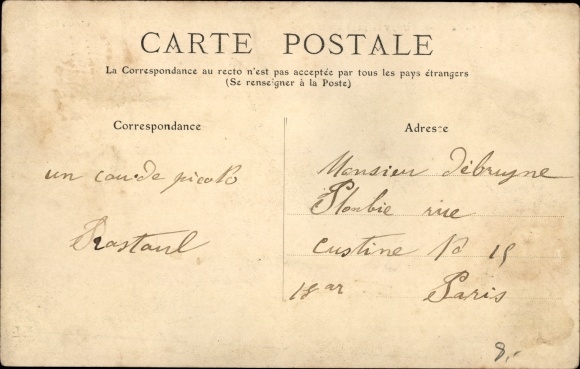 CARTE POSTALE
La Correspondance au recto n'est pas acceptée par tous les pays étrangers
(Se renseigner à la Poste)
Correspondance
un cou de picolo
Adresse
Monsieur Débruyne
Plonbie rue
Custine No 15
18ar Paris
8,-